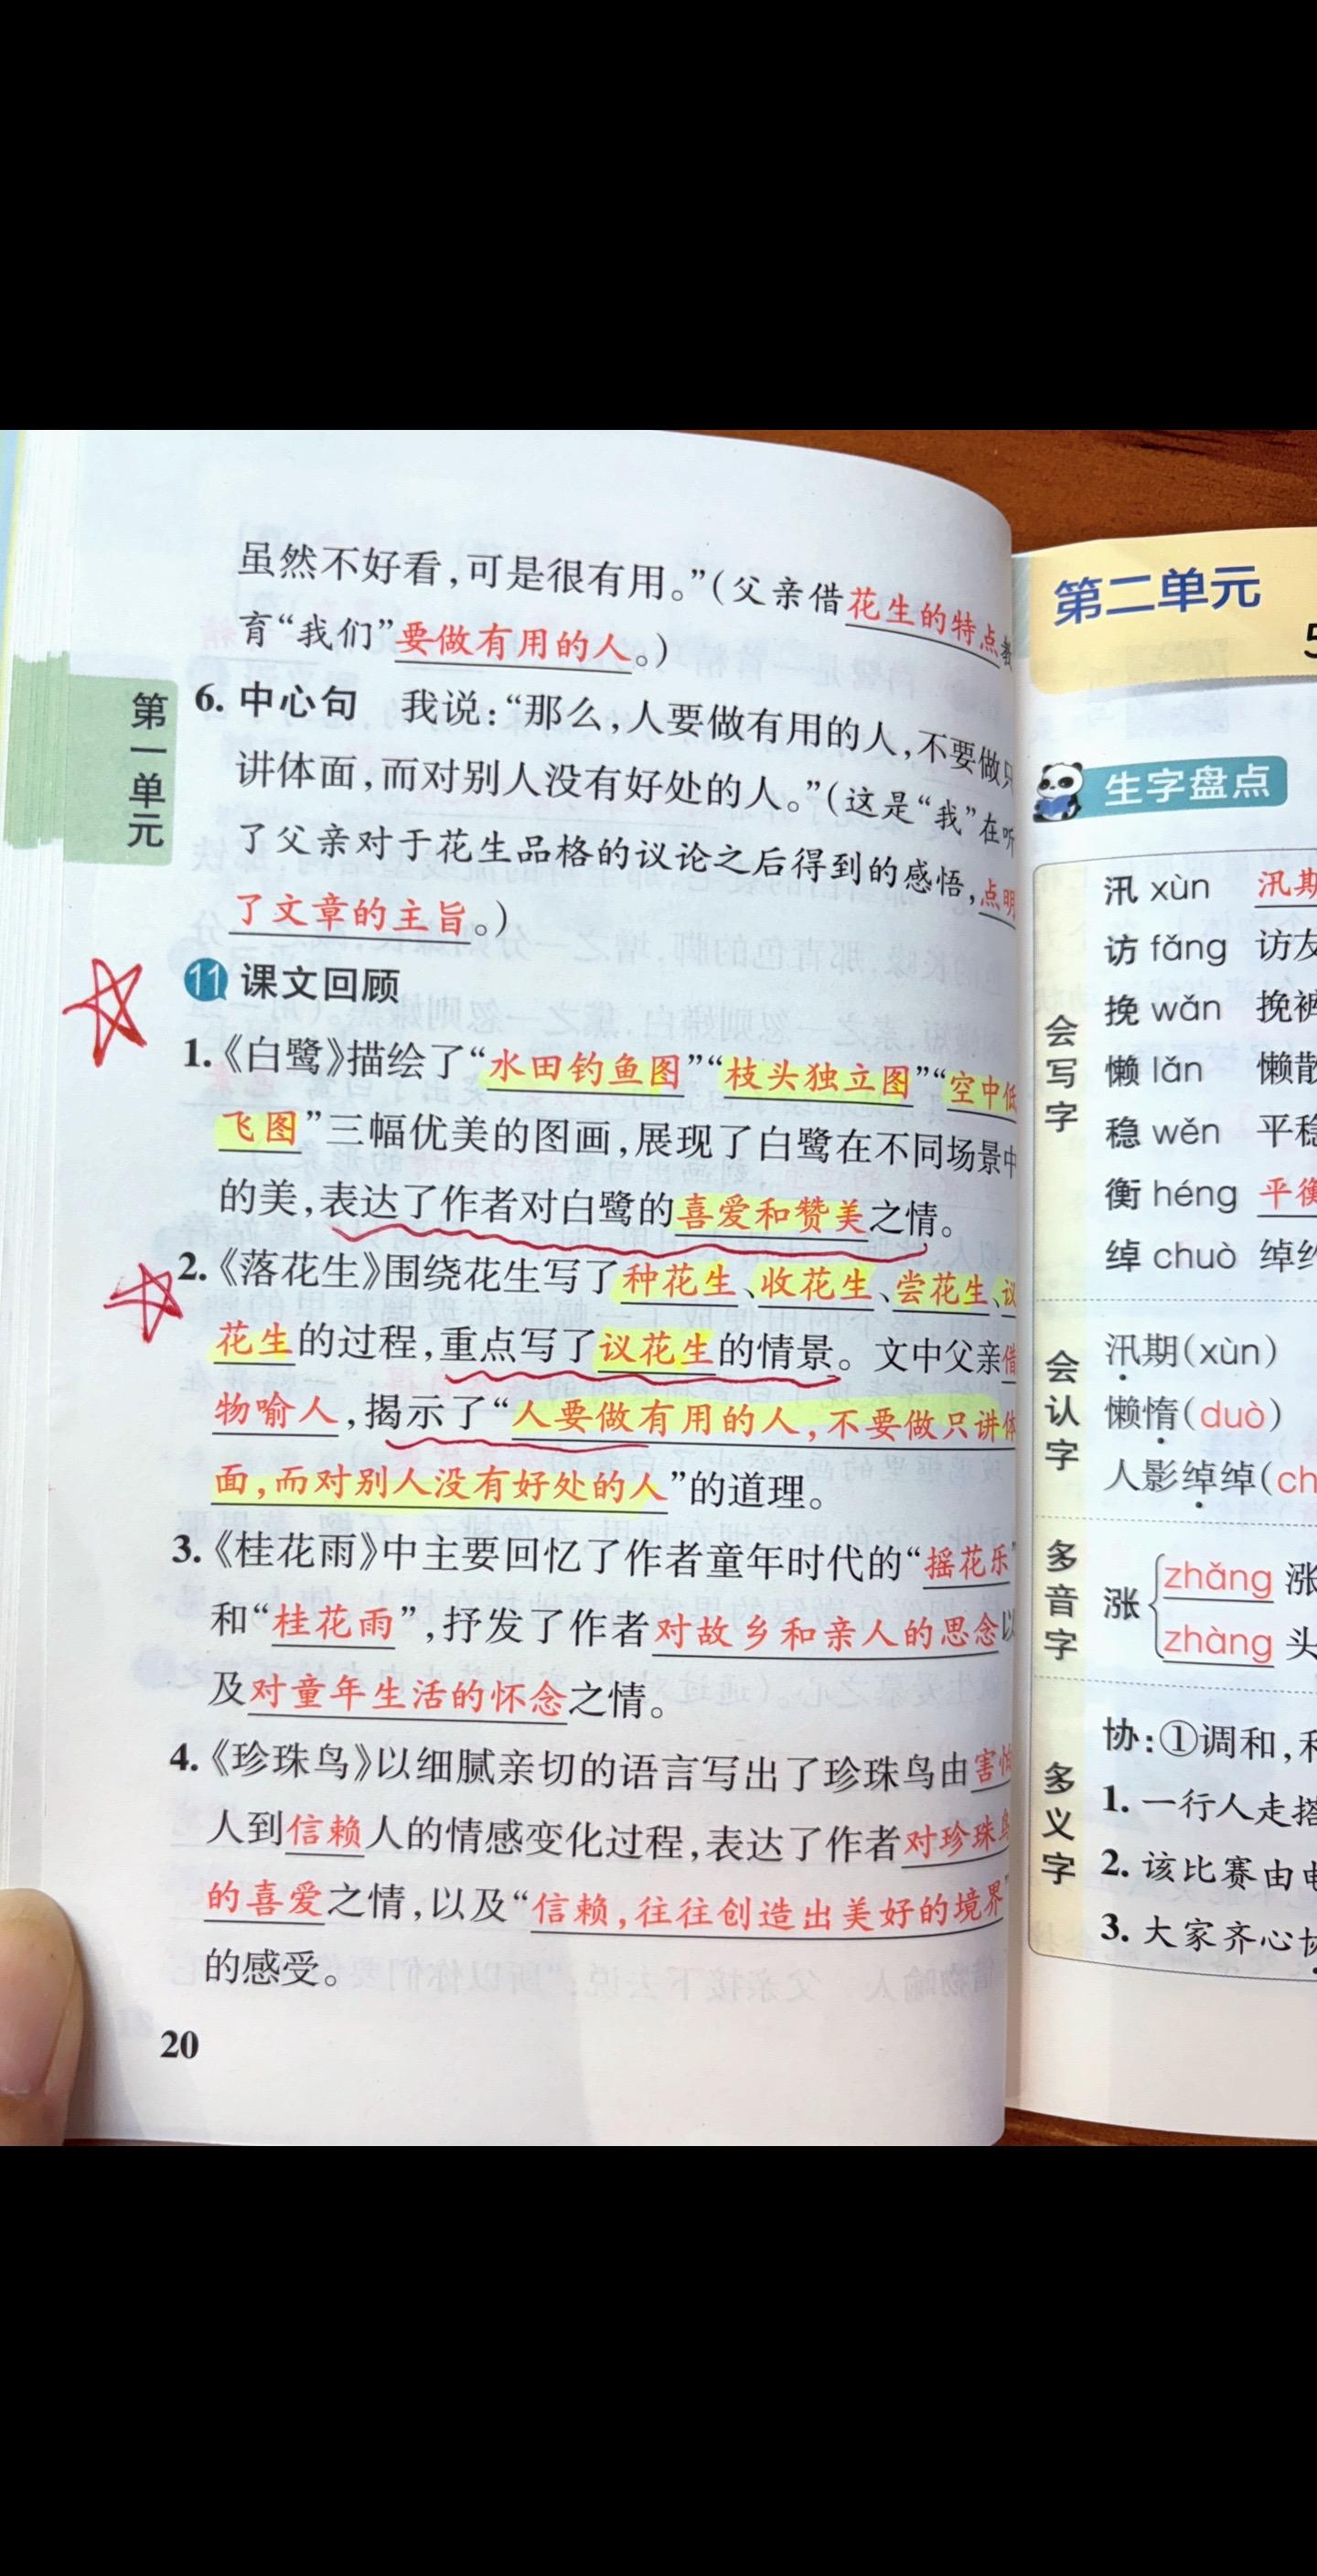 虽然不好看,可是很有用。”(父亲借花生的特点教
育“我们”要做有用的人。)
6. 中心句 我说:“那么,人要做有用的人,不要做只
讲体面,而对别人没有好处的人。”(这是“我”在听
了父亲对于花生品格的议论之后得到的感悟,点明
了文章的主旨。)
11 课文回顾
1.《白鹭》描绘了“水田钓鱼图”“枝头独立图”“空中低
飞图”三幅优美的图画,展现了白鹭在不同场景中
的美,表达了作者对白鹭的喜爱和赞美之情。
2.《落花生》围绕花生写了种花生、收花生、尝花生、议
花生的过程,重点写了议花生的情景。文中父亲借
物喻人,揭示了“人要做有用的人,不要做只讲体
面,而对别人没有好处的人”的道理。
3.《桂花雨》中主要回忆了作者童年时代的“摇花乐”
和“桂花雨”,抒发了作者对故乡和亲人的思念以
及对童年生活的怀念之情。
4.《珍珠鸟》以细腻亲切的语言写出了珍珠鸟由害怕
人到信赖人的情感变化过程,表达了作者对珍珠鸟
的喜爱之情,以及“信赖,往往创造出美好的境界”
的感受。
20
第一单元
第二单元
5
生字盘点
会写字
汛 xùn 汛期
访 fǎng 访友
挽 wǎn 挽裤
懒 lǎn 懒散
稳 wěn 平稳
衡 héng 平衡
绰 chuò 绰约
会认字
汛期(xùn)
懒惰(duò)
人影绰绰(ch
多音字
涨
zhǎng 涨
zhàng 头
多义字
协:①调和,和
1. 一行人走搭
2. 该比赛由电
3. 大家齐心协